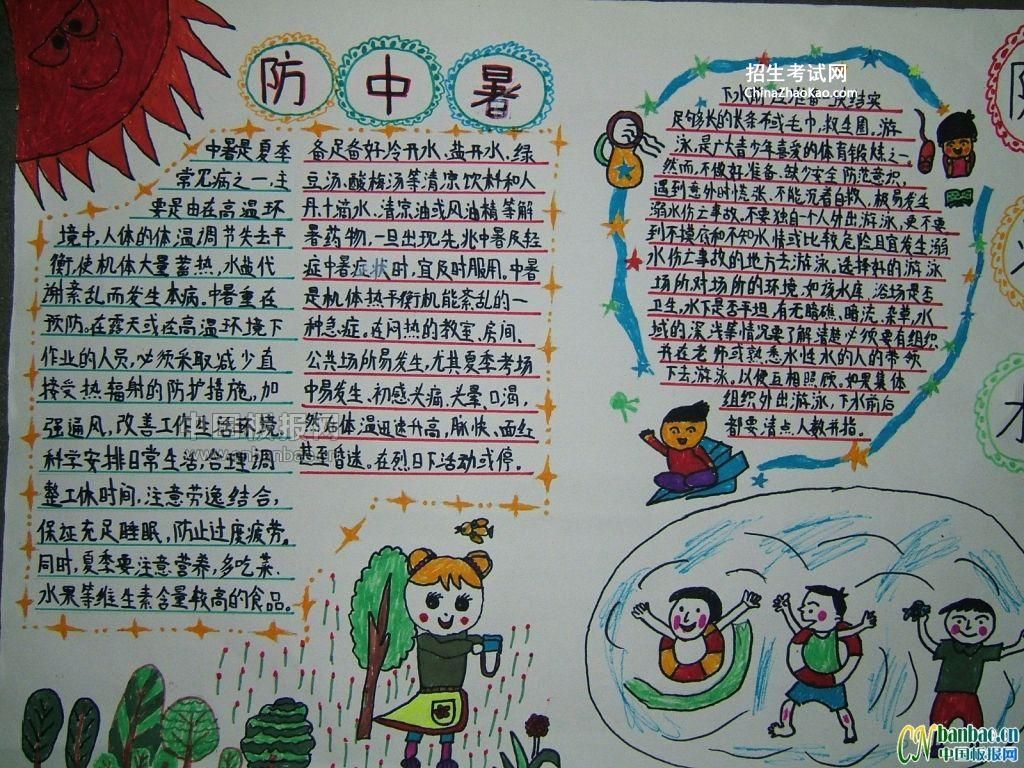 防中暑
中暑是夏季
常见病之一,主
要是由在高温环
境中,人体的体温调节失去平
衡,使机体大量蓄热,水盐代
谢紊乱而发生本病。中暑重在
预防。在露天或在高温环境下
作业的人员,必须采取减少直
接受热辐射的防护措施,加
强通风,改善工作生活环境,
科学安排日常生活,合理调
整工休时间,注意劳逸结合,
保证充足睡眠,防止过度疲劳。
同时,夏季要注意营养,多吃菜
水果等维生素含量较高的食品。
备足备好冷开水、盐开水、绿
豆汤、酸梅汤等清凉饮料和人
丹、十滴水、清凉油或风油精等解
暑药物,一旦出现先兆中暑及轻
症中暑症状时,宜及时服用。中暑
是机体热平衡机能紊乱的一
种急症。在闷热的教室、房间、
公共场所易发生,尤其夏季考场
中易发生、初感头痛、头晕、口渴,
然后体温迅速升高,脉快、面红
甚至昏迷。在烈日下活动或停。
招生考试网
ChinaZhaoKao.com
下水前应准备一块结实
足够长的长条布或毛巾,救生圈,游
泳,是广大青少年喜爱的体育锻炼之一。
然而,不做好准备、缺少安全防范意识,
遇到意外时慌张、不能沉着自救,极易发生
溺水伤亡事故。不要独自一个人外出游泳,更不要
到不摸底和不知水情或比较危险且宜发生溺
水伤亡事故的地方去游泳。选择好的游泳
场所,对场所的环境,如该水库、浴场是否
卫生,水下是否平坦,有无暗礁、暗流、杂草,水
域的深、浅等情况要了解清楚。必须要有组织
并在老师或熟悉水性水的人的带领
下去游泳。以便互相照顾。如果集体
组织外出游泳,下水前后
都要清点人数并指。
中国板报网
www.cnbanbao.cn
CNbanbao.cn
中国板报网